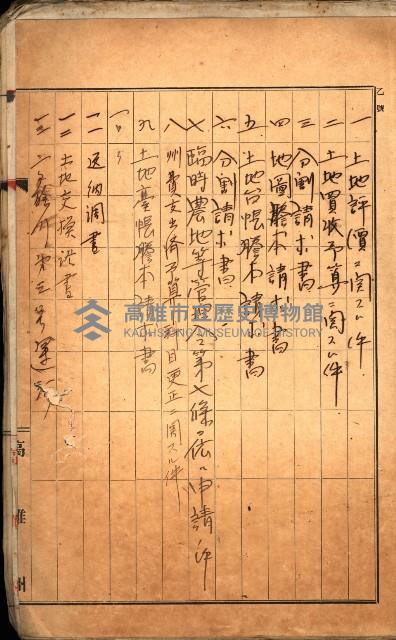 乙號
一 土地評價ニ関スル件
二 土地買収予算ニ関スル件
三 分割請求書
四 地圖謄本請求書
五 土地台帳謄本請求書
六 分割請求書
七 臨時農地等管理令第七條ニ依ル申請ノ件
八 州費支出済予算科目更正ニ関スル件
九 土地臺帳謄本請求書
一〇 〃
一一 返納調書
一二 土地交換証書
一三 第三号運河
高雄州
高雄市立歷史博物館
KAOHSIUNG MUSEUM OF HISTORY